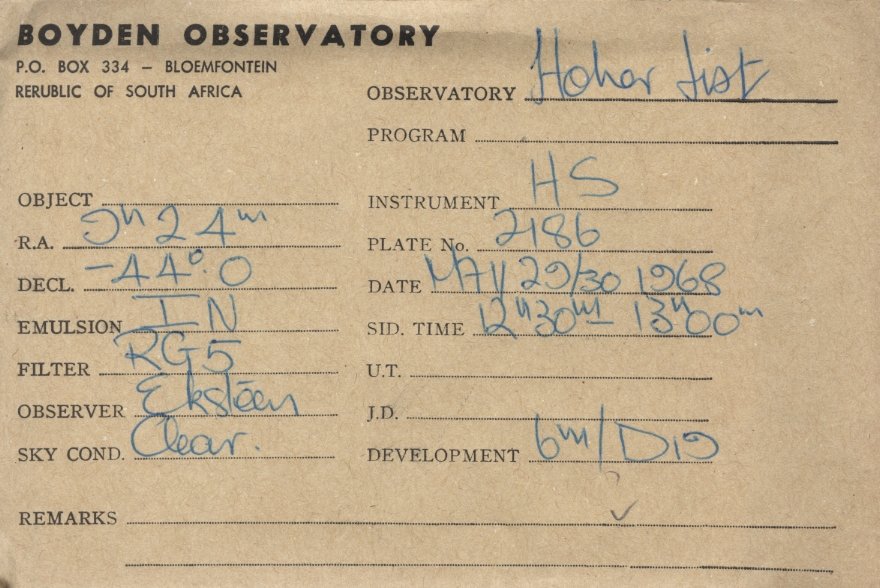 BOYDEN OBSERVATORY
P.O. BOX 334 – BLOEMFONTEIN
RERUBLIC OF SOUTH AFRICA
OBSERVATORY Hoher List
PROGRAM
OBJECT
R.A. 9h 24m
DECL. -44°.0
EMULSION IN
FILTER RG5
OBSERVER Eksteen
SKY COND. Clear.
INSTRUMENT HS
PLATE No. 2186
DATE MAY 29/30 1968
SID. TIME 12h30m - 13h00m
U.T.
J.D.
DEVELOPMENT 6m/D19
REMARKS